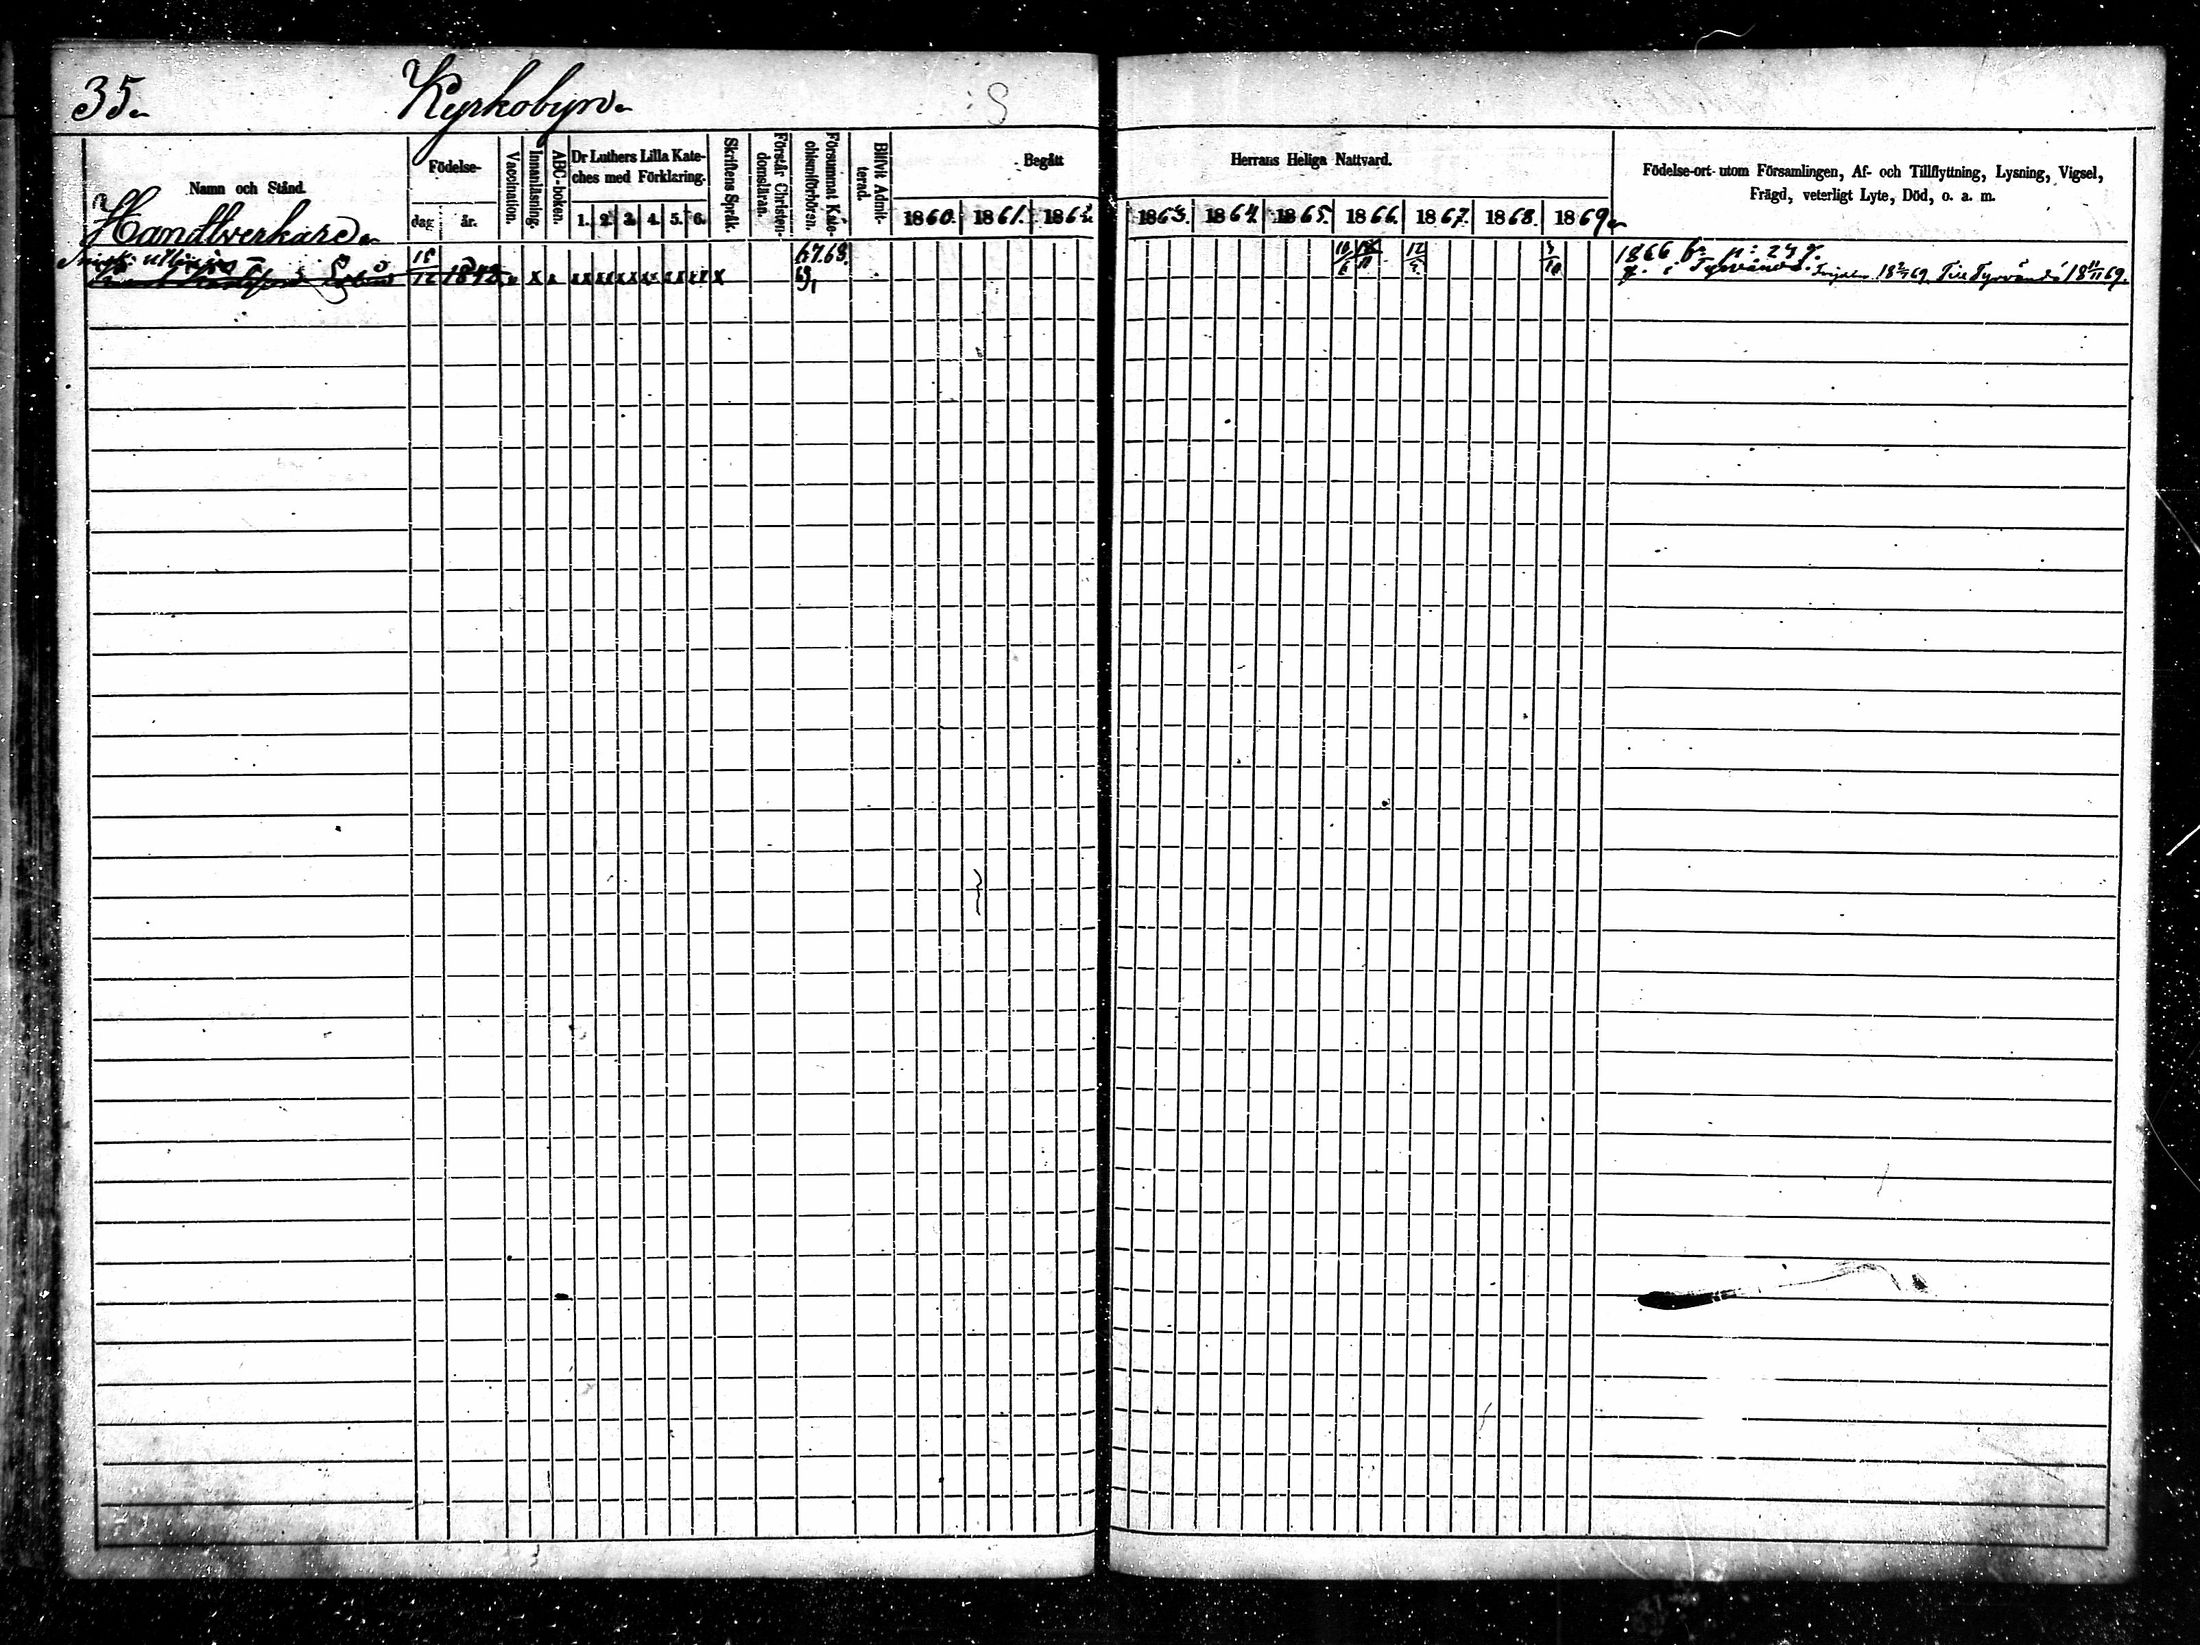 35.
Kyrkobyn.
Namn och Stånd.
Födelse-
dag
år.
Vaccination.
Innanläsning.
ABC-boken.
Dr Luthers Lilla Kate-
ches med Förklaring.
1. 2. 3. 4. 5. 6.
Skriftens Språk.
Förstår Christen-
domsläran.
Försummat Kate-
chismiförhören.
Blifvit Admit-
terad.
Begått
1860. 1861. 1862.
Herrans Heliga Nattvard.
1863. 1864. 1865. 1866. 1867. 1868. 1869.
Födelse-ort utom Församlingen, Af- och Tillflyttning, Lysning, Vigsel,
Frägd, veterligt Lyte, Död, o. a. m.
Handtverkare.
12 1842 x x x x x x x x x x
67.68.
69,
10/6 12/9 3/10
1866 fr n: 249.
f. i Tyrvändö. 69. Till Tyrvändö 18 11/11 69.